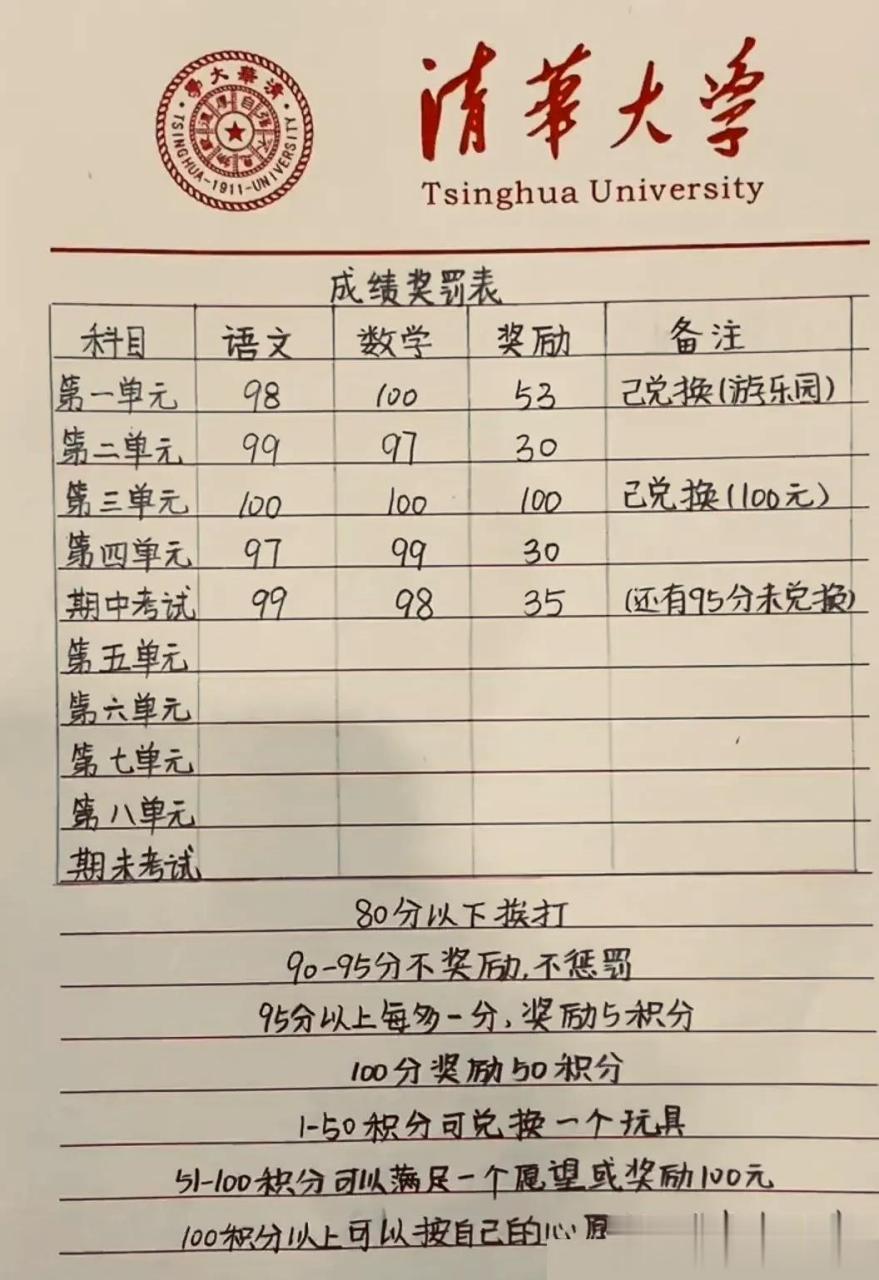 清華大学
Tsinghua University
清華大學
TSINGHUA-1911-UNIVERSITY
成绩奖罚表
科目 语文 数学 奖励 备注
第一单元 98 100 53 己兑换(游乐园)
第二单元 99 97 30
第三单元 100 100 100 己兑换(100元)
第四单元 97 99 30
期中考试 99 98 35 (还有95分未兑换)
第五单元
第六单元
第七单元
第八单元
期末考试
80分以下挨打
90-95分不奖励,不惩罚
95分以上每多一分,奖励5积分
100分奖励50积分
1-50积分可兑换一个玩具
51-100积分可以满足一个愿望或奖励100元
100积分以上可以按自己的心愿